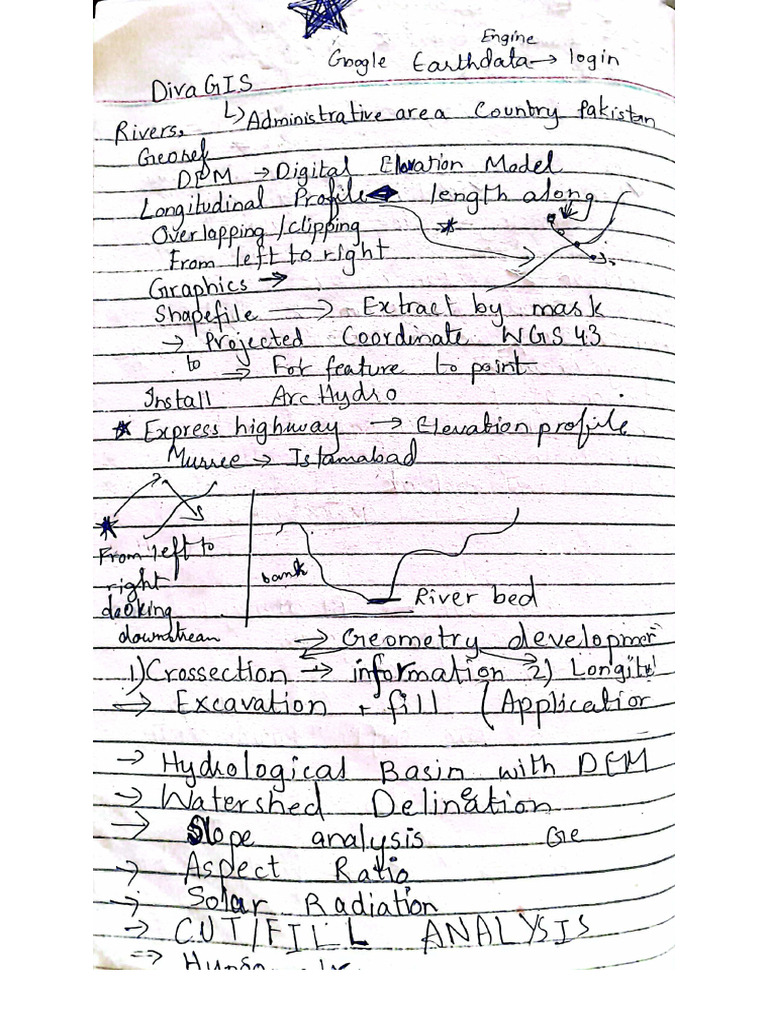 Engine
Google Earthdata → login
Diva GIS
↳ Administrative area Country Pakistan
Rivers,
Georef
DEM → Digital Elevation Model
Longitudinal Profile length along
Overlapping / clipping
From left to right
Graphics →
Shapefile → Extract by mask
→ Projected Coordinate WGS 43
to → For feature to point
Install Arc Hydro
* Express highway → Elevation profile
Murree → Islamabad
From left to
right
looking
downstream
bank
River bed
→ Geometry developmen
1) Crossection → information 2) Longitu
→ Excavation + fill (Application
→ Hydrological Basin with DEM
→ Watershed Delineation
→ Slope analysis Ge
→ Aspect Ratio
→ Solar Radiation
→ CUT/FILL ANALYSIS